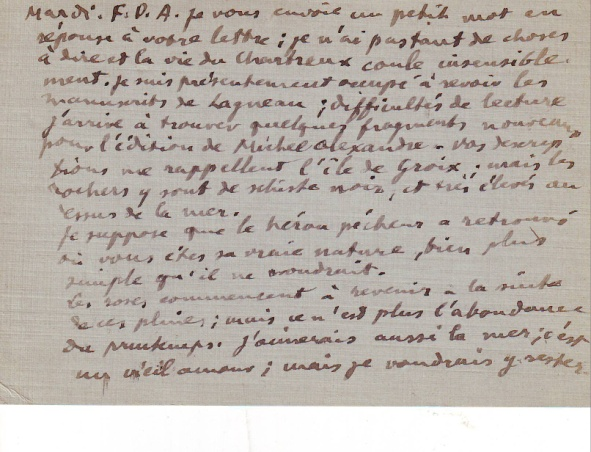 Mardi. F. D. A. Je vous envoie un petit mot en
réponse à votre lettre ; je n'ai pas tant de choses
à dire et la vie du Chartreux coule insensible-
ment. Je suis présentement occupé à revoir les
manuscrits de Lagneau ; difficultés de lecture
j'arrive à trouver quelques fragments nouveaux
pour l'édition de Michel Alexandre - Vos descrip
tions me rappellent l'île de Groix. mais les
rochers y sont de schiste noir, et très élevés au
dessus de la mer.
Je suppose que le héron pêcheur a retrouvé
où vous êtes sa vraie nature, bien plus
simple qu'il ne voudrait.
Les roses commencent à revenir à la suite
de ces pluies ; mais ce n'est plus l'abondance
du printemps. J'aimerais aussi la mer ; c'est
un vieil amour ; mais je voudrais y rester